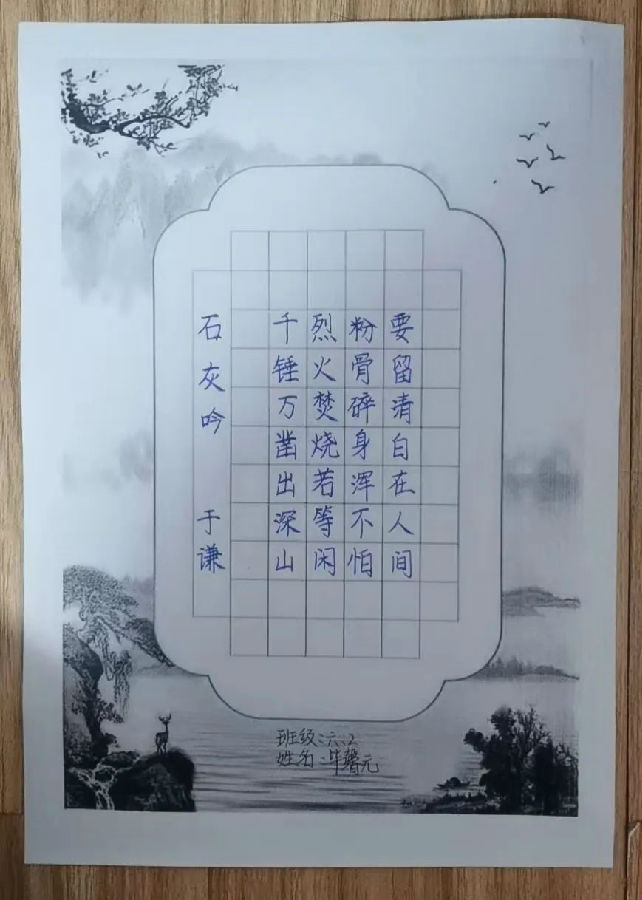 石灰吟 于谦
千锤万凿出深山
烈火焚烧若等闲
粉骨碎身浑不怕
要留清白在人间
班级:六、2
姓名:毕馨元